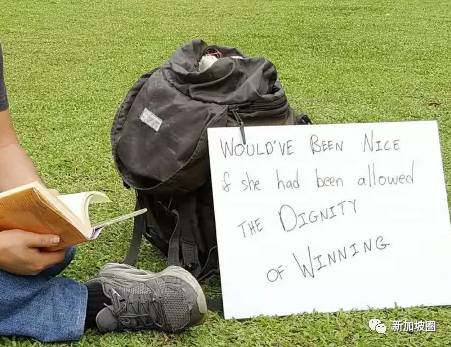 WOULD'VE BEEN NICE
if she had been allowed
THE DIGNITY
OF WINNING
新加坡圈